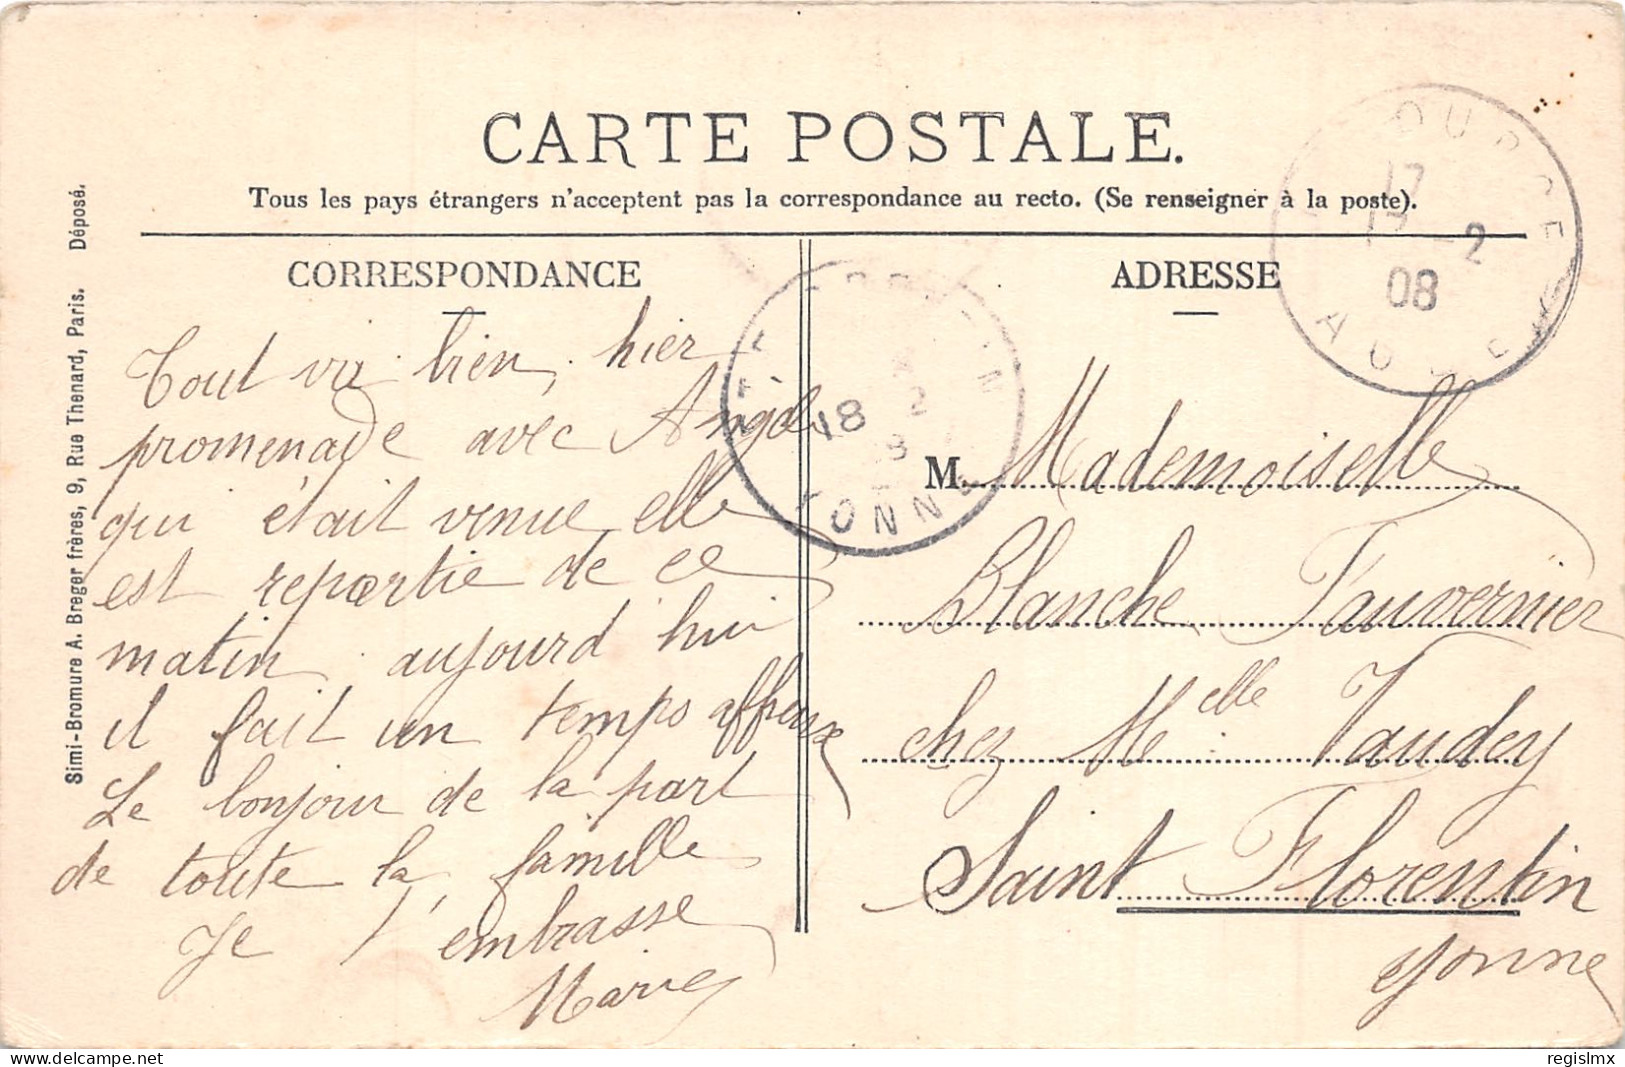 CARTE POSTALE.
Tous les pays étrangers n'acceptent pas la correspondance au recto. (Se renseigner à la poste).
CORRESPONDANCE
Tout va bien, hier
promenade avec
qui était venue elle
est repartie de ce
matin aujourd hui
il fait un temps affreux
Le bonjour de la part
de toute la famille
Je t'embrasse
Marie
ADRESSE
M. Mademoiselle
Blanche Fauvernier
chez Melle Vaudey
Saint Florentin
Yonne
Simi-Bromure A. Breger frères, 9, Rue Thenard, Paris. Déposé.
17
-2
08
AUBE
18
2
YONNE
regislmx